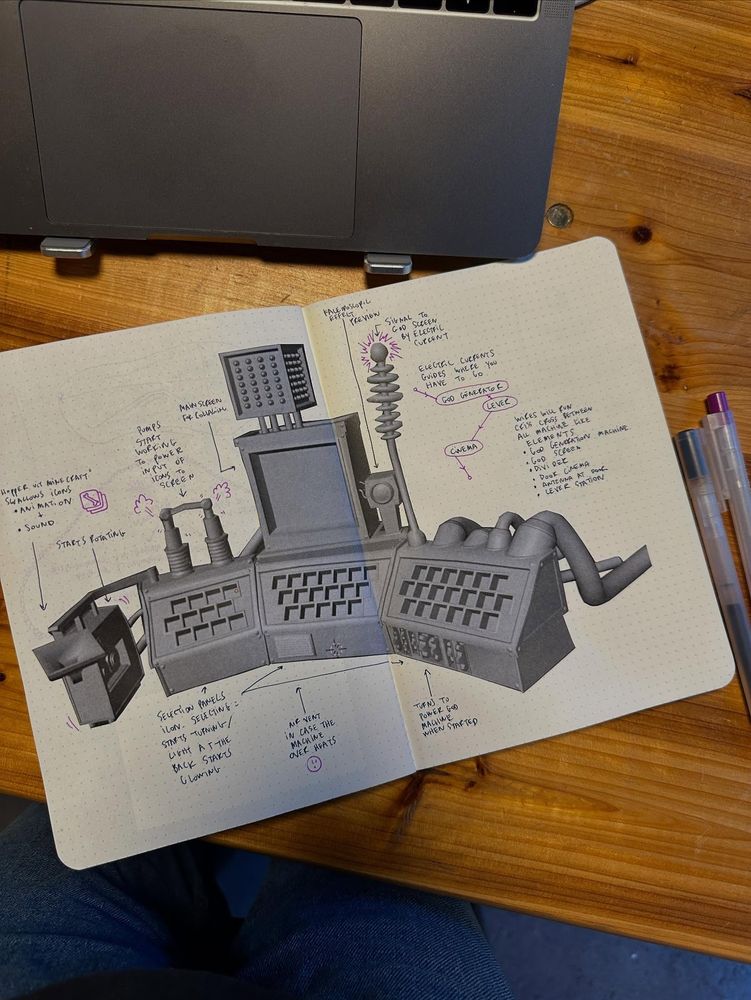 KALEIDOSCOPIC
EFFECT
PREVIEW
SIGNAL TO
GOD SCREEN
BY ELECTRIC
CURRENT
ELECTRIC CURRENTS
GUIDES WHERE YOU
HAVE TO GO
GOD GENERATOR
LEVER
CINEMA
WIRES WILL RUN
CRISS CROSS BETWEEN
ALL MACHINE LIKE
ELEMENTS
• GOD GENERATION MACHINE
• GOD SCREEN
• DIVIDER
• DOOR CINEMA
• ANTENNA AT DOOR
• LEVER STATION
MAINSCREEN
FOR COLLAGING
PUMPS
START
WORKING
TO POWER
INPUT OF
ICONS TO
SCREEN
"HOPPER UIT MINECRAFT"
SWALLOWS ICONS
• ANIMATION
+
• SOUND
STARTS ROTATING
SELECTION PANELS
ICON. SELECTING =
STARTS TURNING/
LIGHT AT THE
BACK STARTS
GLOWING
AIR VENT
IN CASE THE
MACHINE
OVER HEATS
TURNS TO
POWER GOD
MACHINE
WHEN STARTED